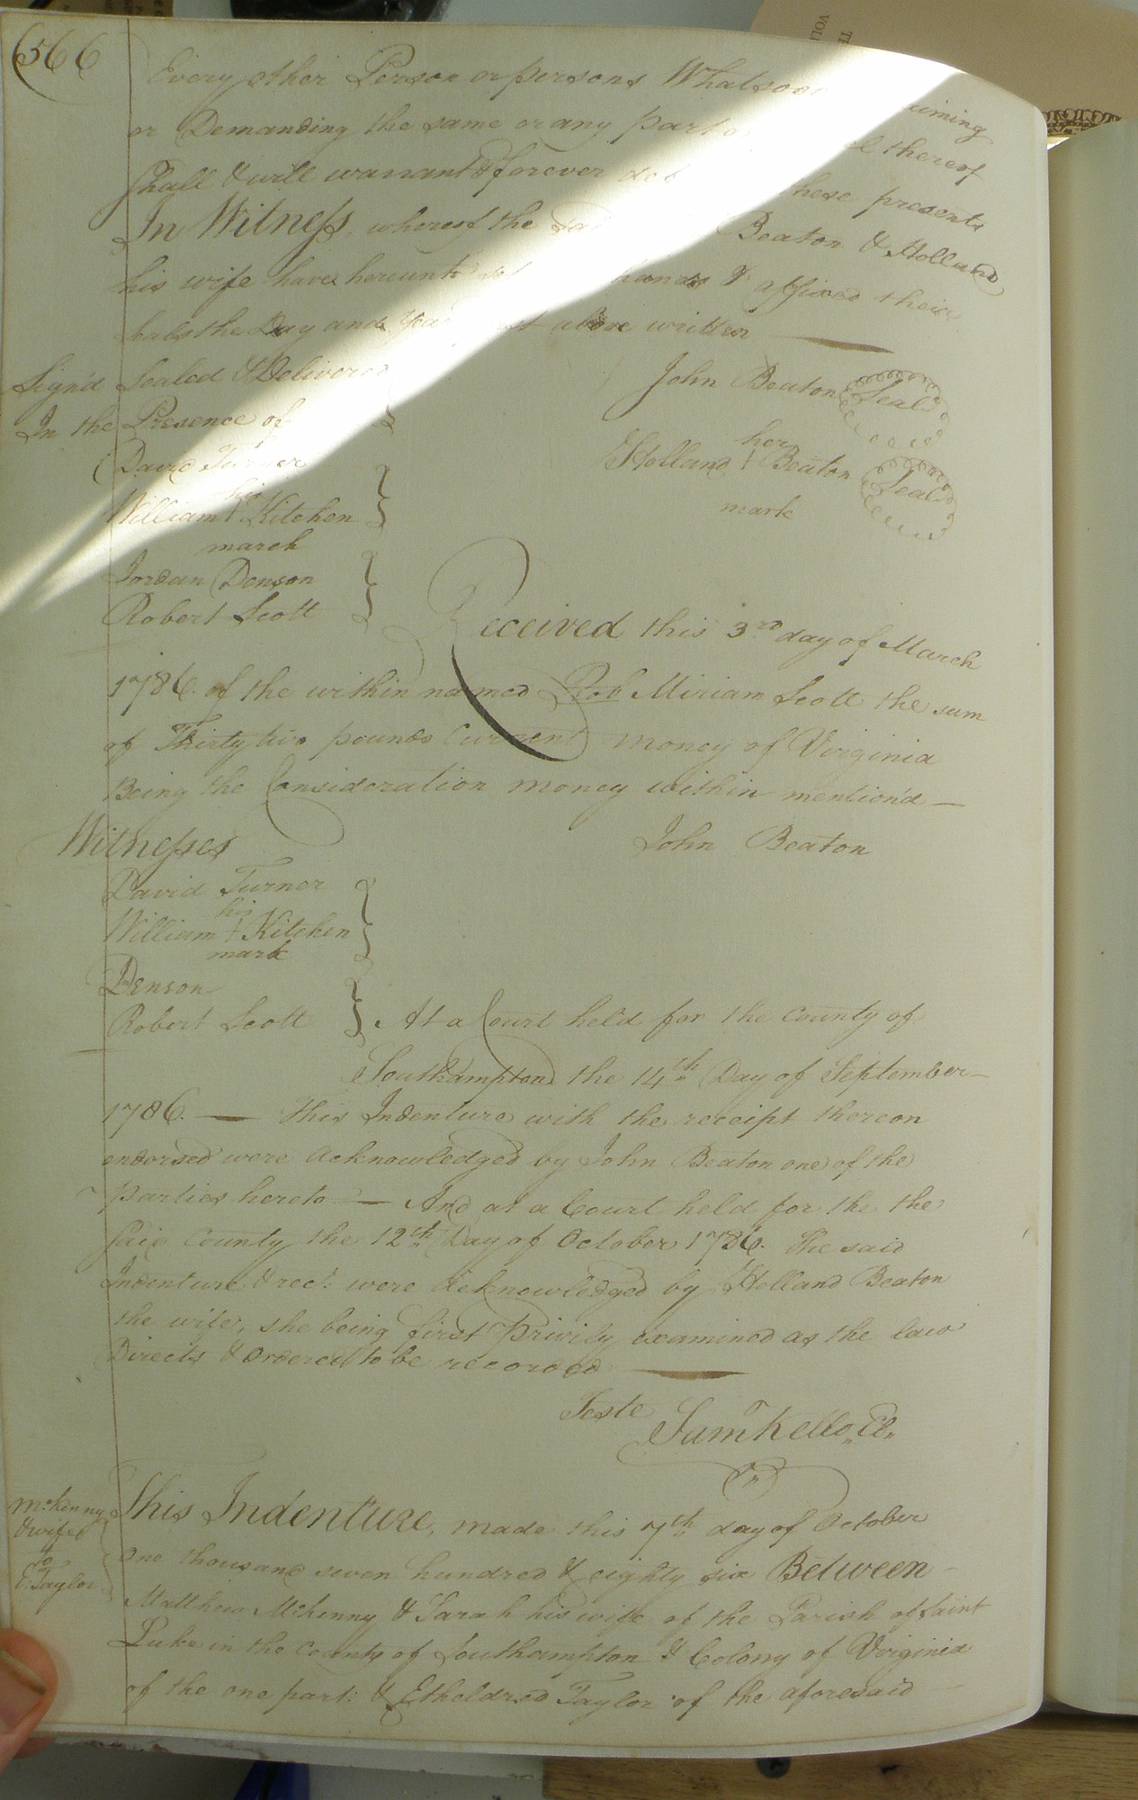 566
Every other Person or persons Whatsoe uiming
or Demanding the same or any part o l thereof
Shall & will warrant & forever de these presents
In Witness, whereof the Beaton & Holland
his wife have hereunto set hands & affixed their
Seals the Day and Year above written
Sign'd Sealed & Delivered
In the Presence of
John Beaton Seal
David Turner
her
Holland Beaton Seal
mark
his
William Kitchen
march
Jordan Denson
Robert Scott
Received this 3rd day of March
1786. of the within named Rob Miriam Scott the sum
of Thirty two pounds Current money of Virginia
Being the Consideration money within mention'd —
Witnesses
John Beaton
David Turner
his
William Kitchen
mark
Denson
Robert Scott
At a Court held for the County of
Southampton the 14th Day of September
1786. — This Indenture with the receipt thereon
endorsed were acknowledged by John Beaton one of the
Parties hereto — And at a Court held for the the
said County the 12th Day of October 1786. The said
Indenture & rect. were acknowledged by Holland Beaton
the wife, she being first privily examined as the law
Directs & ordered to be recorded
Teste
Saml Kello, Cl.
McKinny
& wife
to
E. Taylor
This Indenture, made this 7th day of October
one thousand seven hundred & eighty six Between
Matthew McKinny & Sarah his wife of the Parish of Saint
Luke in the County of Southampton & Colony of Virginia
of the one part: & Etheldred Taylor of the aforesaid